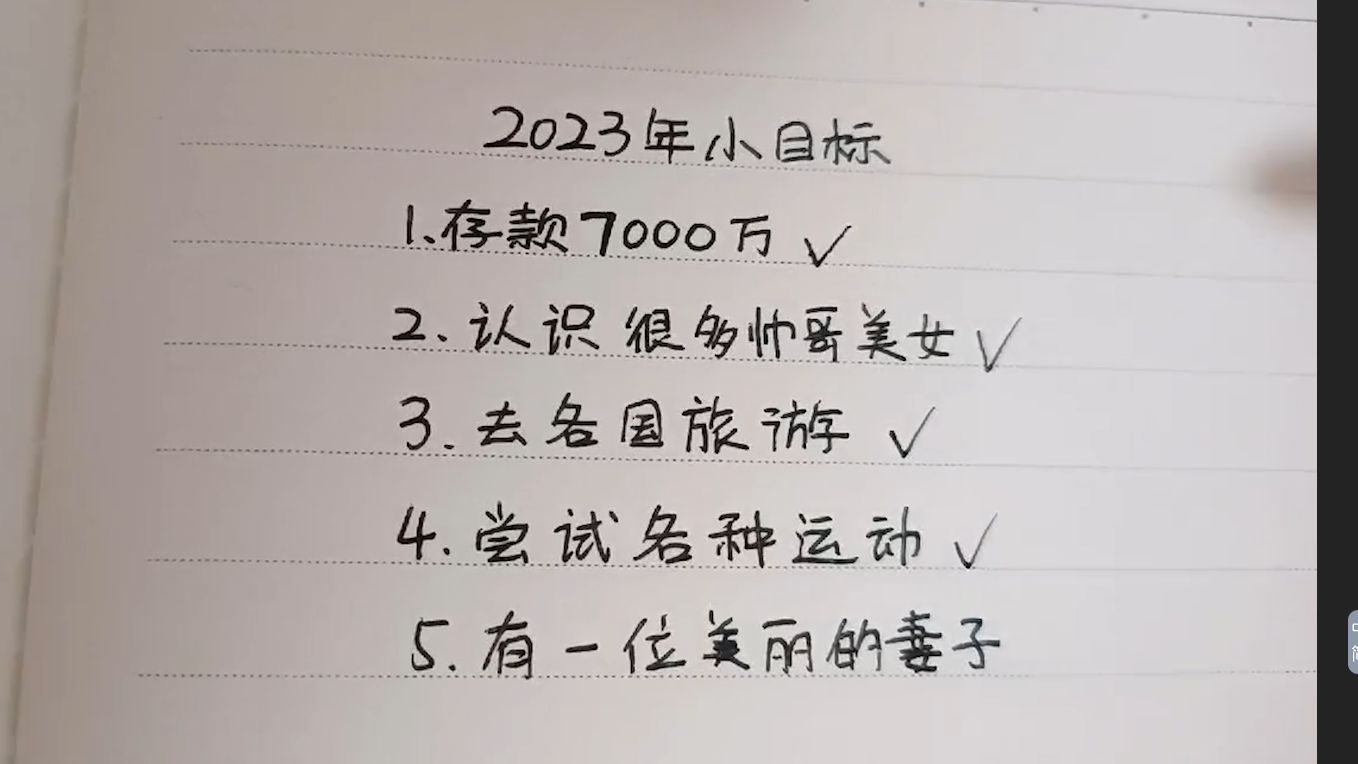 2023年小目标
1、存款7000万 ✓
2. 认识很多帅哥美女 ✓
3. 去各国旅游 ✓
4. 尝试各种运动 ✓
5. 有一位美丽的妻子